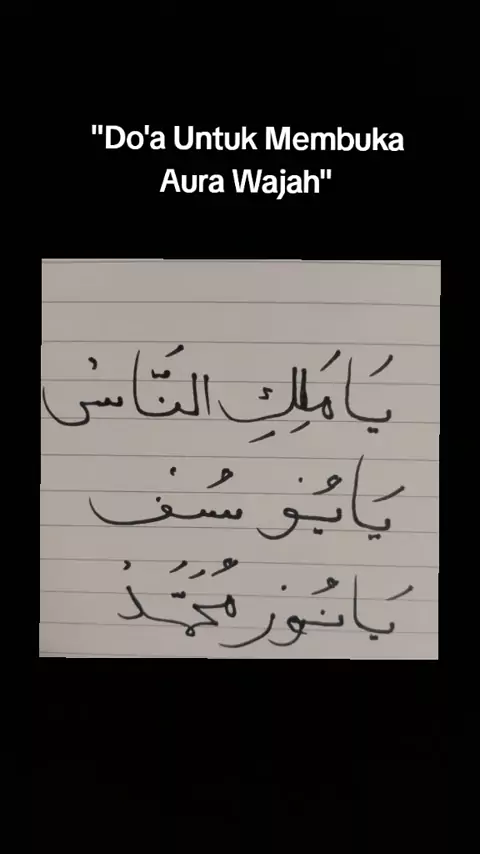 "Do'a Untuk Membuka
Aura Wajah"
يَا مَلِكِ النَّاسْ
يَا يُوْ سُفْ
يَا نُوْرْ مُحَمَّدْ